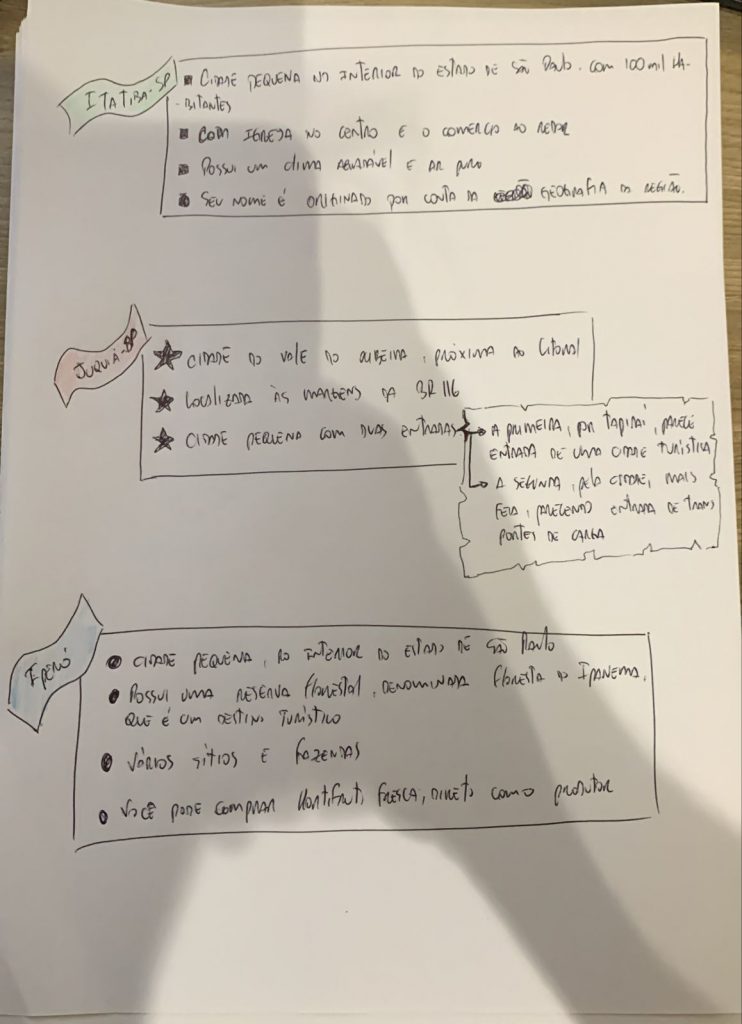 ITATIBA-SP
CIDADE PEQUENA NO INTERIOR DO ESTADO DE SÃO PAULO. COM 100 mil HA-
-BITANTES
COM IGREJA NO CENTRO E O COMERCIO AO REDOR
POSSUI UM CLIMA AGRADÁVEL E AR PURO
SEU NOME É ORIGINADO POR CONTA DA GEOGRAFIA DA REGIÃO.
JUQUIÁ-SP
CIDADE DO VALE DO RIBEIRA, PRÓXIMA AO LITORAL
LOCALIZADA ÀS MARGENS DA BR 116
CIDADE PEQUENA COM DUAS ENTRADAS
A PRIMEIRA, POR TAPIRAÍ, PARECE
ENTRADA DE UMA CIDADE TURÍSTICA
A SEGUNDA, PELA CIDADE, MAIS
FEIA, PARECENDO ENTRADA DE TRANS
PORTES DE CARGA
IPERÓ
CIDADE PEQUENA, DO INTERIOR DO ESTADO DE SÃO PAULO
POSSUI UMA RESERVA FLORESTAL, DENOMINADA FLORESTA DO IPANEMA,
QUE É UM DESTINO TURÍSTICO
VÁRIOS SÍTIOS E FAZENDAS
VOCÊ PODE COMPRAR HORTIFRUTI FRESCA, DIRETO COM O PRODUTOR